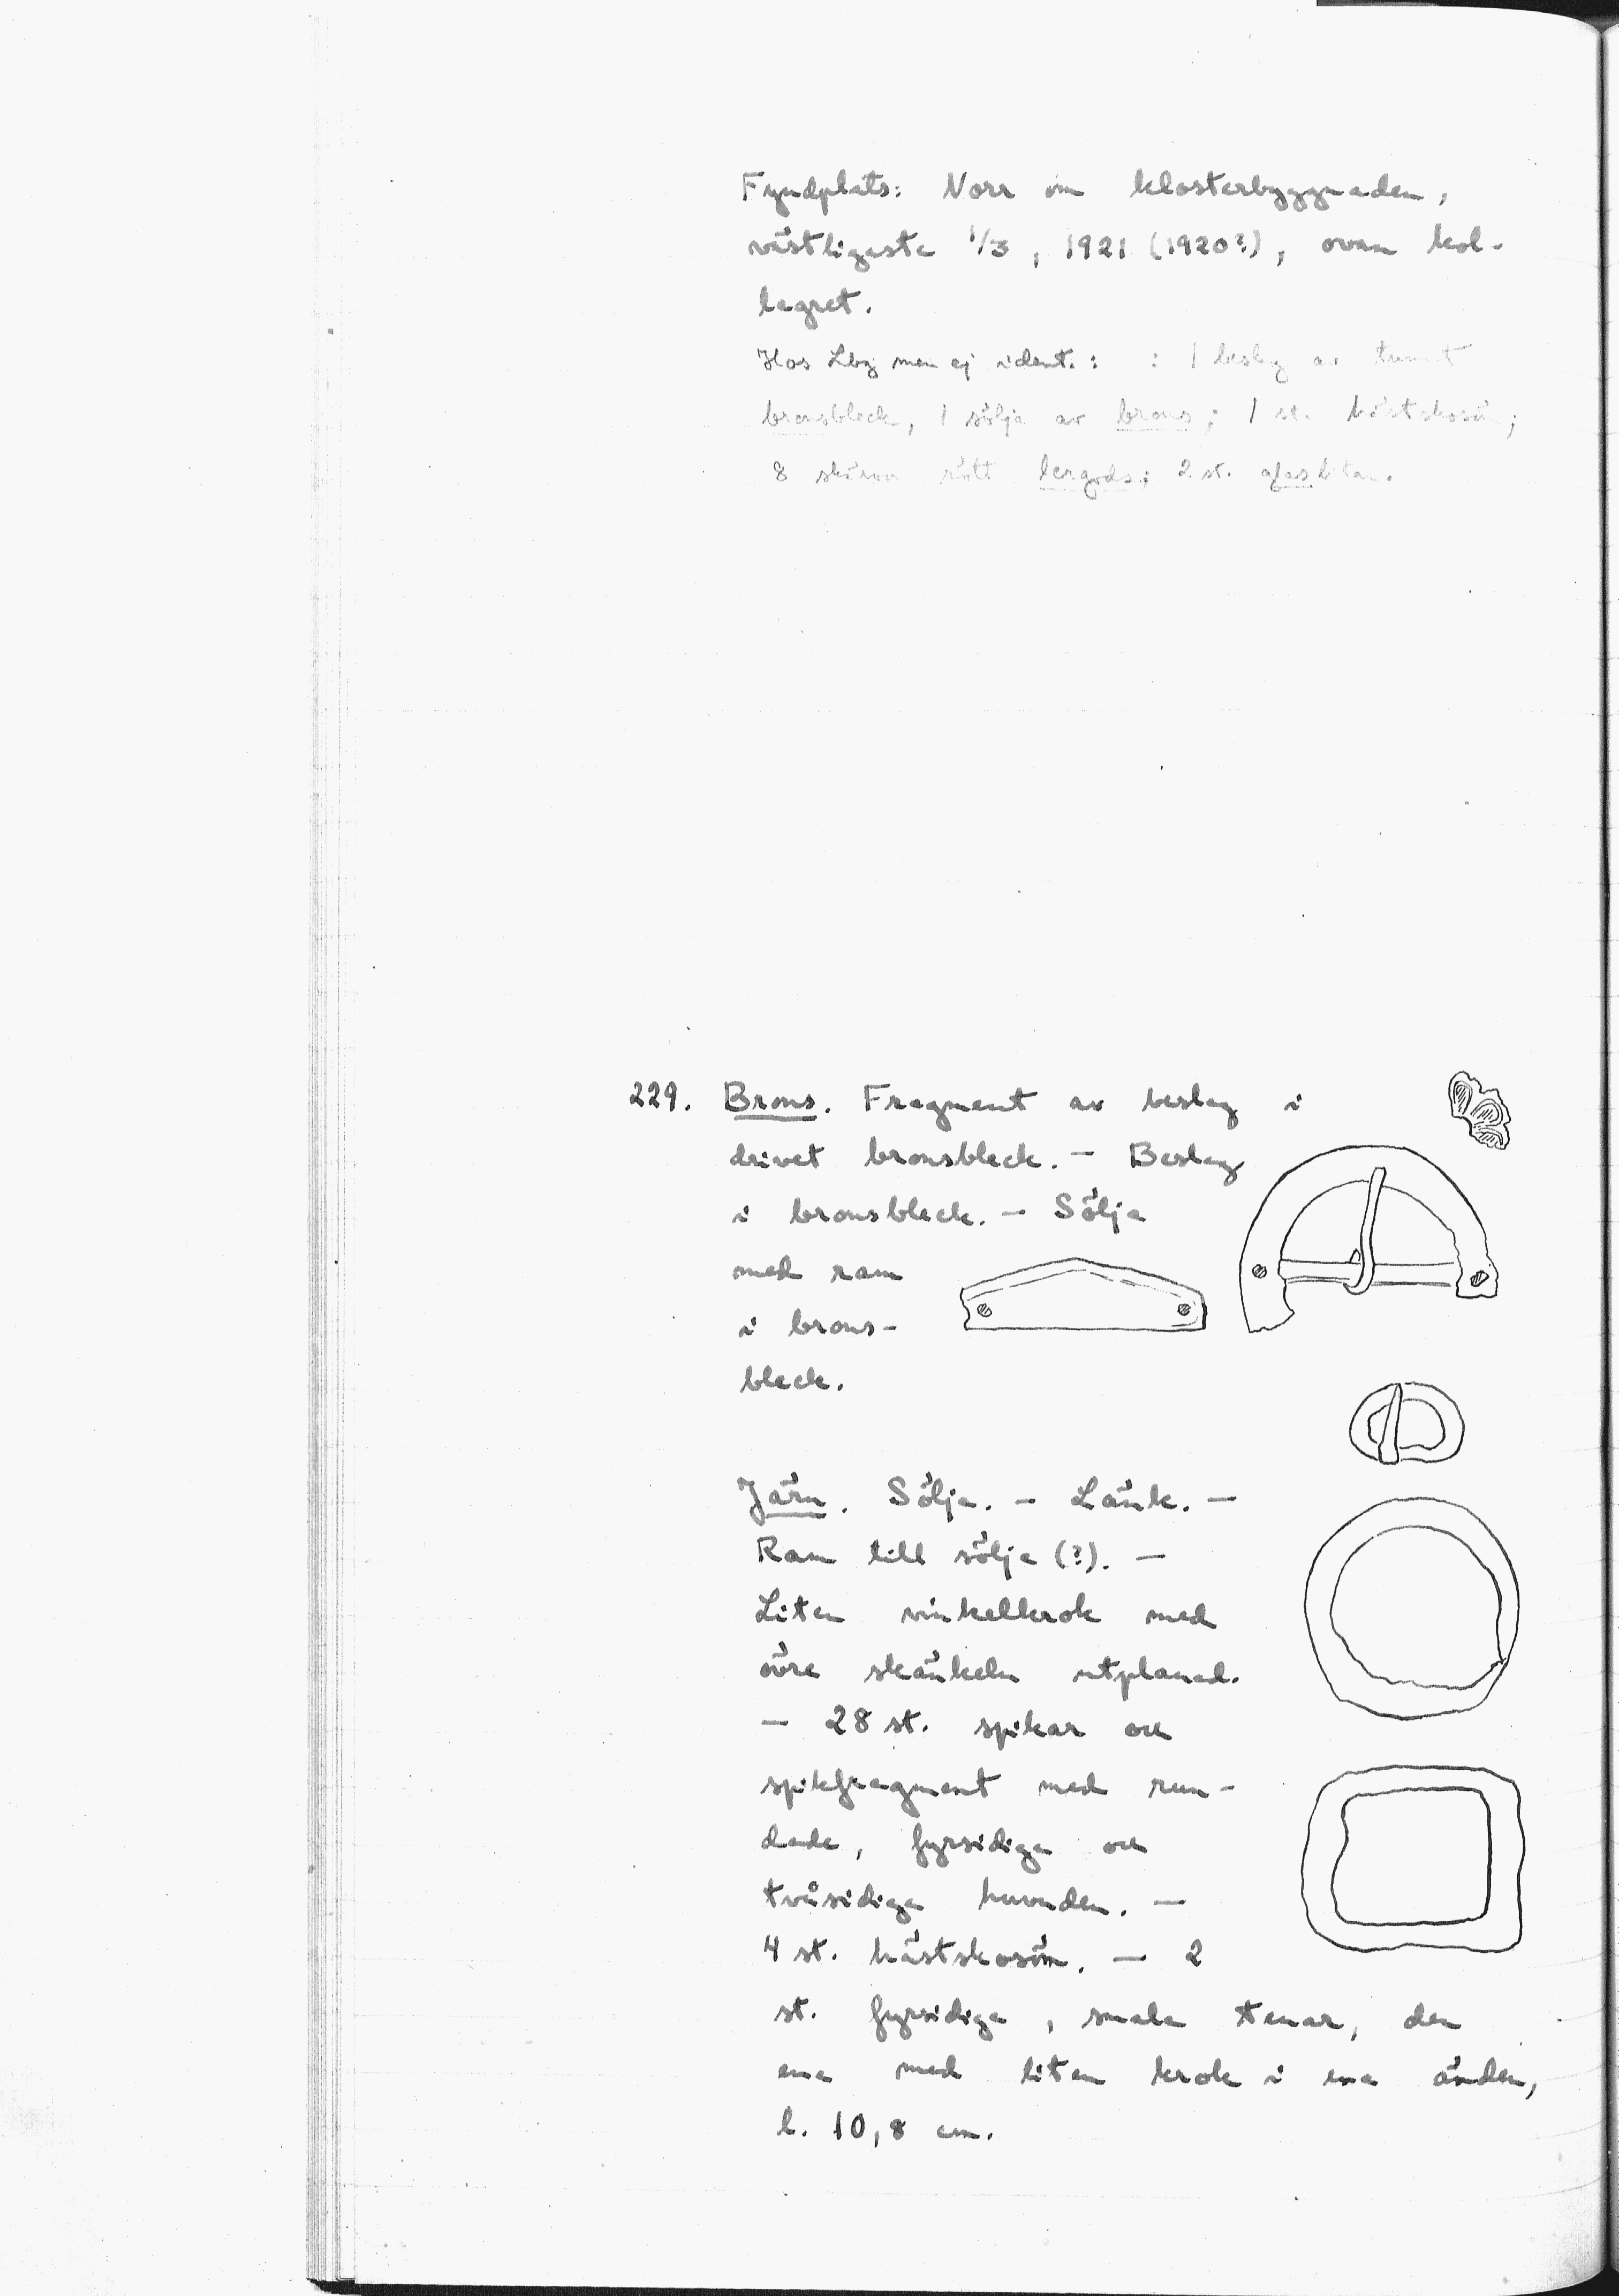 Fyndplats: Norr om klosterbyggnaden,
västligaste 1/3, 1921 (1920?), ovan kol-
lagret.
Hos Lbg men ej ident.: : 1 beslag av tunnt
bronsbleck, 1 sölja av brons; 1 st. hästskosöm;
8 skärvor rött lergods; 2 st. glasbitar.
229. Brons. Fragment av beslag i
drivet bronsbleck. — Beslag
i bronsbleck. — Sölja
med ram
i brons-
bleck.
Järn. Sölja. — Länk. —
Ram till sölja (?). —
Liten vinkelkrok med
övre skänkeln utplanad.
— 28 st. spikar och
spikfragment med run-
dade, fyrsidiga och
tvåsidiga huvuden. —
4 st. hästskosöm. — 2
st. fyrsidiga, smala tenar, den
ena med liten krok i ena änden,
l. 10,8 cm.